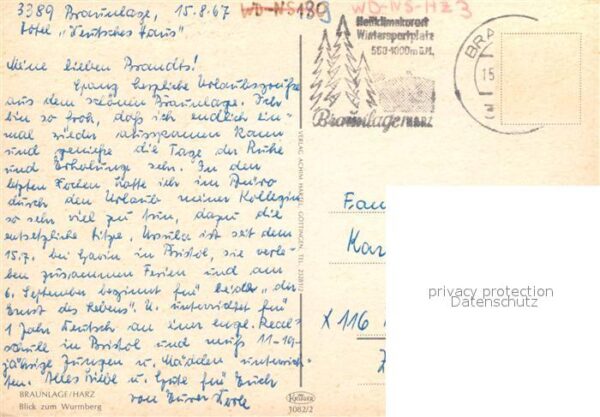 3389 Braunlage, 15.8.67
Hotel „Deutsches Haus"
WD-NS189
139
WD-NS-HZ3
Heilklimakurort
Wintersportplatz
560-1000m ü.M.
Braunlage HARZ
BRA
15.
Meine lieben Brandts!
Ganz herzliche Urlaubsgrüße
aus dem schönen Braunlage. Ich
bin so froh, daß ich endlich ein-
mal wieder ausspannen kann
und genieße die Tage der Ruhe
und Erholung sehr. In den
letzten Wochen hatte ich im Büro
durch den Urlaub meiner Kollegin
so sehr viel zu tun, dazu die
entsetzliche Hitze. Ursula ist seit dem
15.7. bei Gavin in Bristol, sie verle-
ben zusammen Ferien und am
6. September beginnt für beide „der
Ernst des Lebens". U. unterrichtet für
1 Jahr Deutsch an einer engl. Real-
schule in Bristol und muß 11-19-
jährige Jungen u. Mädchen unterrich-
ten. Alles Liebe u. Gute für Euch
von Eurer
VERLAG ACHIM HARZ, GÖTTINGEN, TEL.
Fam
Kar
X 116
privacy protection
Datenschutz
BRAUNLAGE/HARZ
Blick zum Wurmberg
KRÜGER
1082/2